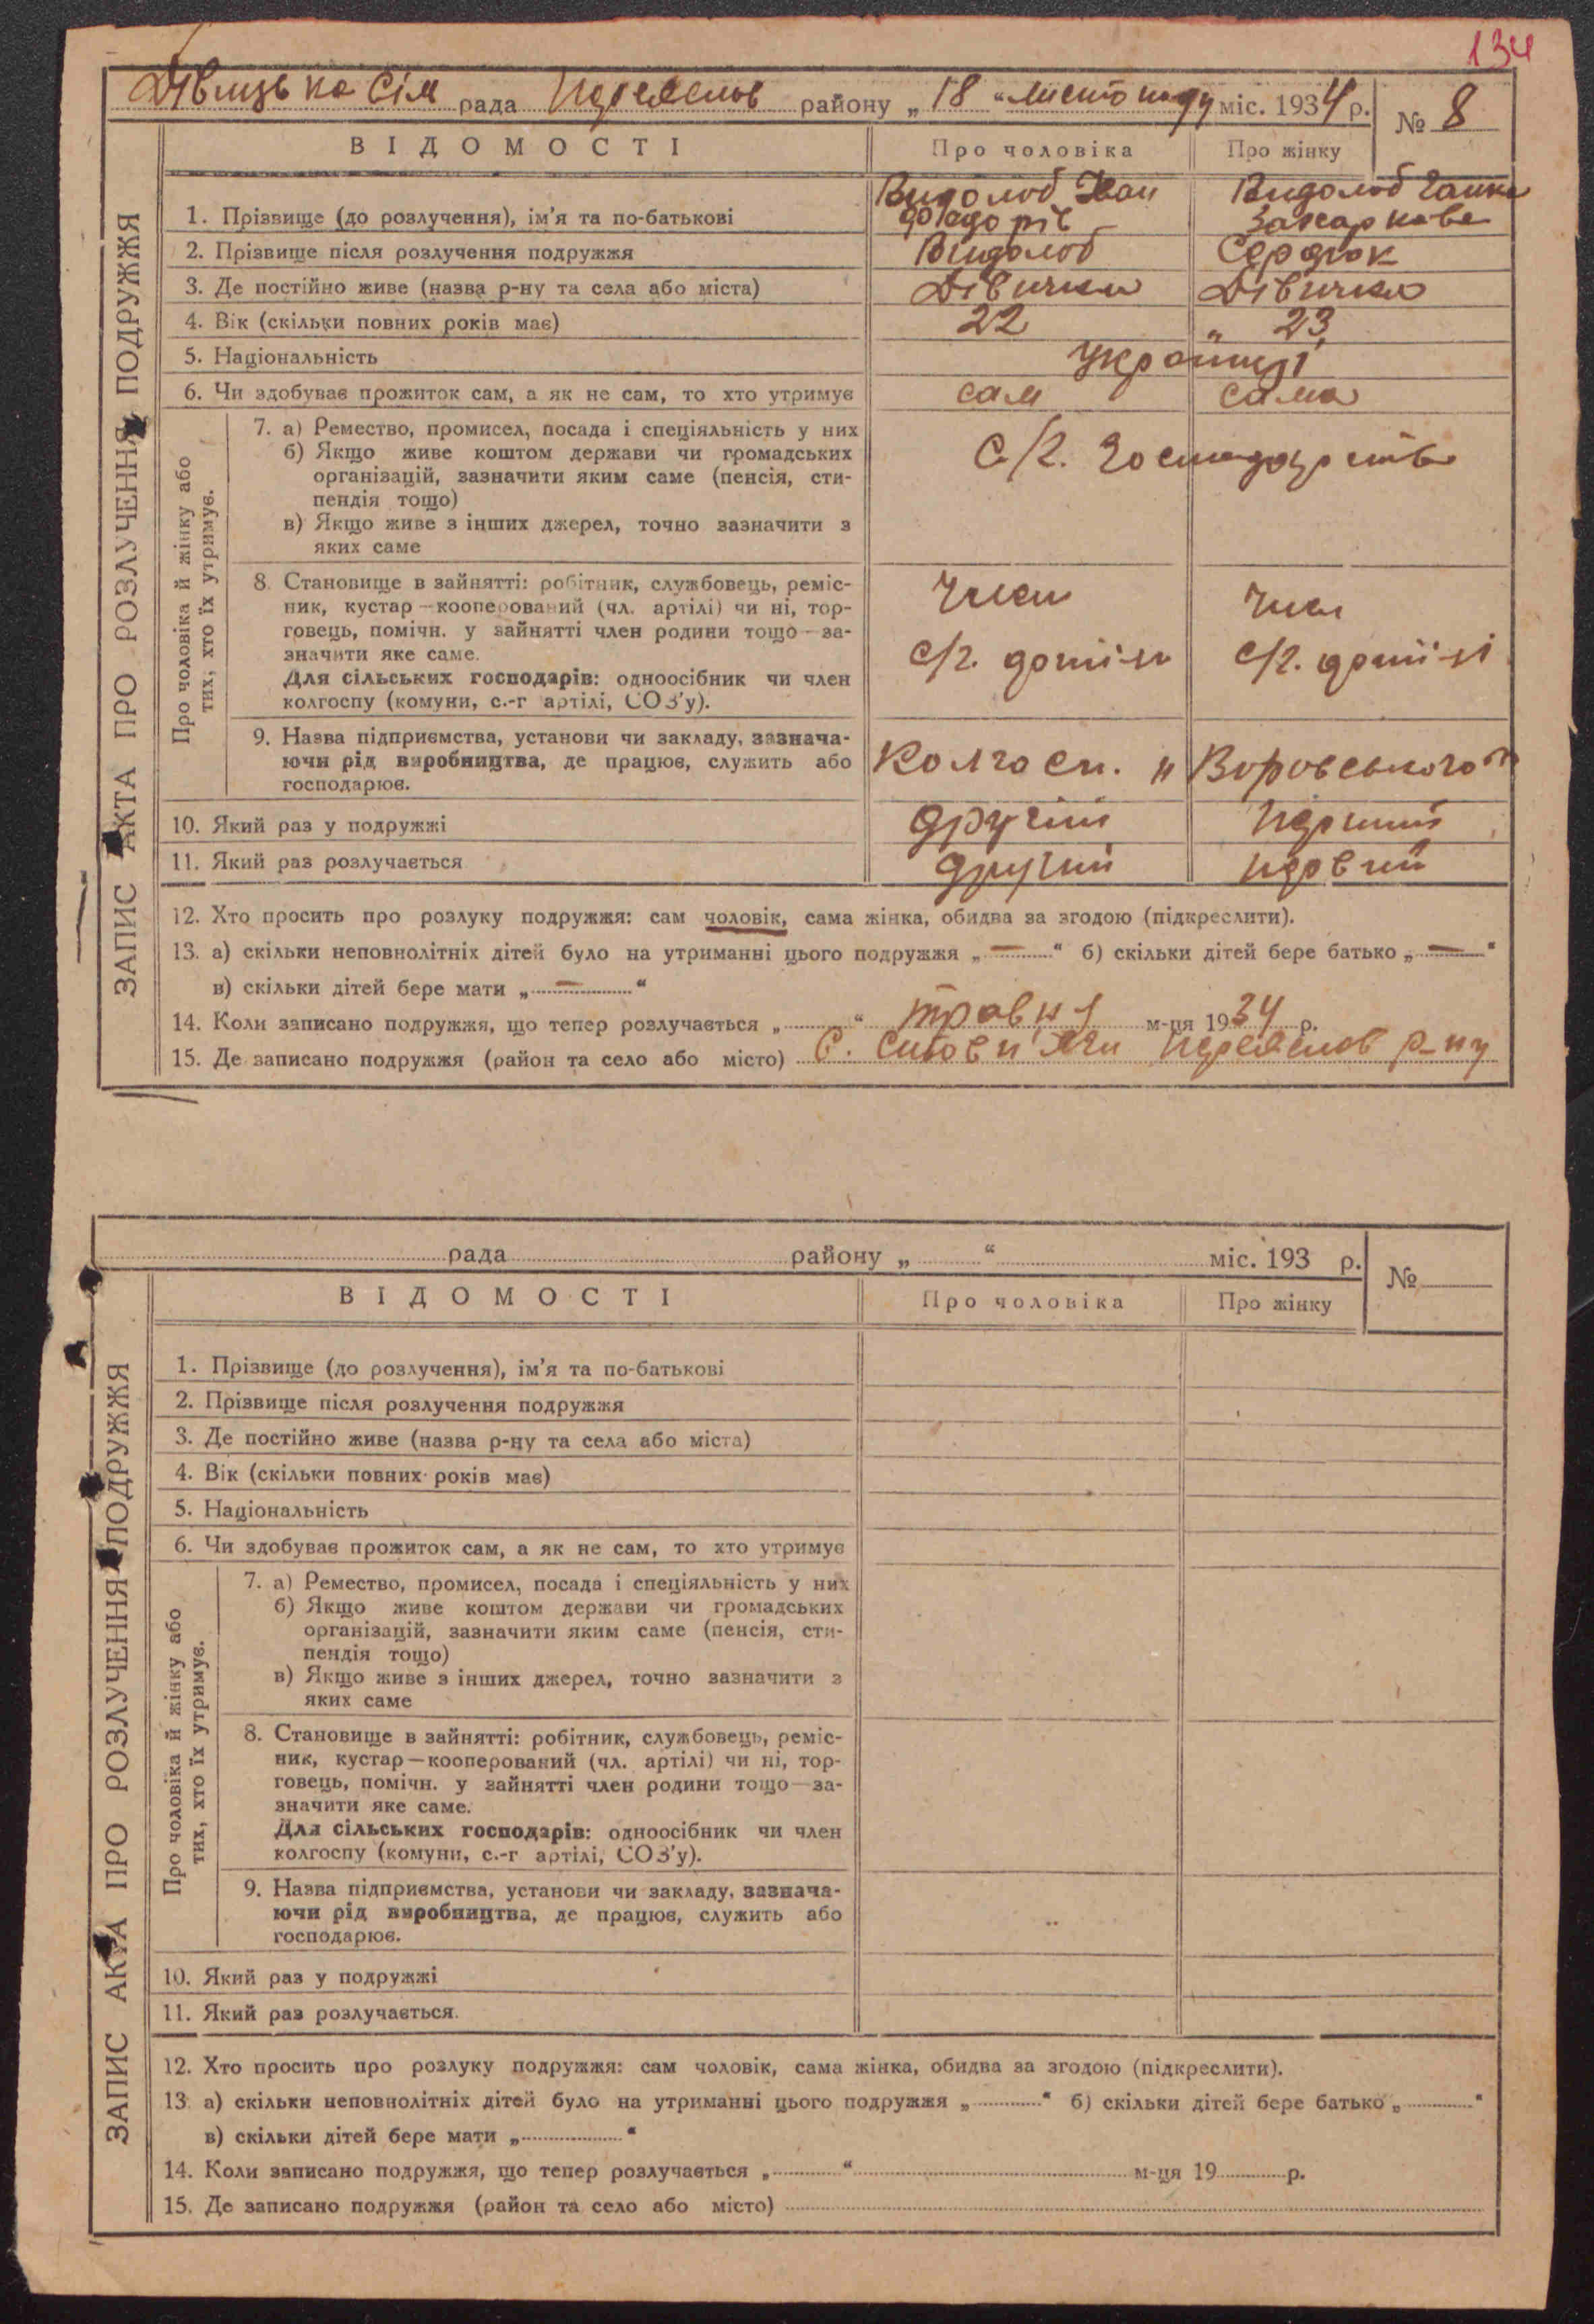 134
Дівицька Сіл рада Переяслов району „18“ листопаду міс. 1934 р. № 8
ВІДОМОСТІ Про чоловіка Про жінку
ЗАПИС АКТА ПРО РОЗЛУЧЕННЯ ПОДРУЖЖЯ
Видолоб Іван Видолоб Ганна
1. Прізвище (до розлучення), ім’я та по-батькові Захаркова
2. Прізвище після розлучення подружжя Видолоб Сердюк
3. Де постійно живе (назва р-ну та села або міста) Дівички Дівички
4. Вік (скільки повних років має) 22 „ 23
5. Національність Українці
6. Чи здобуває прожиток сам, а як не сам, то хто утримує сам сама
Про чоловіка й жінку або
тих, хто їх утримує.
7. а) Ремество, промисел, посада і спеціяльність у них
б) Якщо живе коштом держави чи громадських С/г. господарств
організацій, зазначити яким саме (пенсія, сти-
пендія тощо)
в) Якщо живе з інших джерел, точно зазначити з
яких саме
8. Становище в зайнятті: робітник, службовець, реміс-
ник, кустар—кооперований (чл. артілі) чи ні, тор- Член Член
говець, помічн. у зайнятті член родини тощо—за-
значити яке саме. с/г. артіли с/г. артілі
Для сільських господарів: одноосібник чи член
колгоспу (комуни, с.-г артілі, СОЗ’у).
9. Назва підприємства, установи чи закладу, зазнача-
ючи рід виробництва, де працює, служить або Колгосп. „Воровського“
господарює.
10. Який раз у подружжі другий перший
11. Який раз розлучається другий первий
12. Хто просить про розлуку подружжя: сам чоловік, сама жінка, обидва за згодою (підкреслити).
13. а) скільки неповнолітніх дітей було на утриманні цього подружжя „—“ б) скільки дітей бере батько „—“
в) скільки дітей бере мати „—“
14. Коли записано подружжя, що тепер розлучається „ “ травня м-ця 1934 р.
15. Де записано подружжя (район та село або місто) С. Стовп’яги Переяслов р-ну
рада району „ “ міс. 193 р. №
ВІДОМОСТІ Про чоловіка Про жінку
ЗАПИС АКТА ПРО РОЗЛУЧЕННЯ ПОДРУЖЖЯ
1. Прізвище (до розлучення), ім’я та по-батькові
2. Прізвище після розлучення подружжя
3. Де постійно живе (назва р-ну та села або міста)
4. Вік (скільки повних років має)
5. Національність
6. Чи здобуває прожиток сам, а як не сам, то хто утримує
Про чоловіка й жінку або
тих, хто їх утримує.
7. а) Ремество, промисел, посада і спеціяльність у них
б) Якщо живе коштом держави чи громадських
організацій, зазначити яким саме (пенсія, сти-
пендія тощо)
в) Якщо живе з інших джерел, точно зазначити з
яких саме
8. Становище в зайнятті: робітник, службовець, реміс-
ник, кустар—кооперований (чл. артілі) чи ні, тор-
говець, помічн. у зайнятті член родини тощо—за-
значити яке саме.
Для сільських господарів: одноосібник чи член
колгоспу (комуни, с.-г артілі, СОЗ’у).
9. Назва підприємства, установи чи закладу, зазнача-
ючи рід виробництва, де працює, служить або
господарює.
10. Який раз у подружжі
11. Який раз розлучається.
12. Хто просить про розлуку подружжя: сам чоловік, сама жінка, обидва за згодою (підкреслити).
13 а) скільки неповнолітніх дітей було на утриманні цього подружжя „ “ б) скільки дітей бере батько „ “
в) скільки дітей бере мати „ “
14. Коли записано подружжя, що тепер розлучається „ “ м-ця 19 р.
15. Де записано подружжя (район та село або місто)